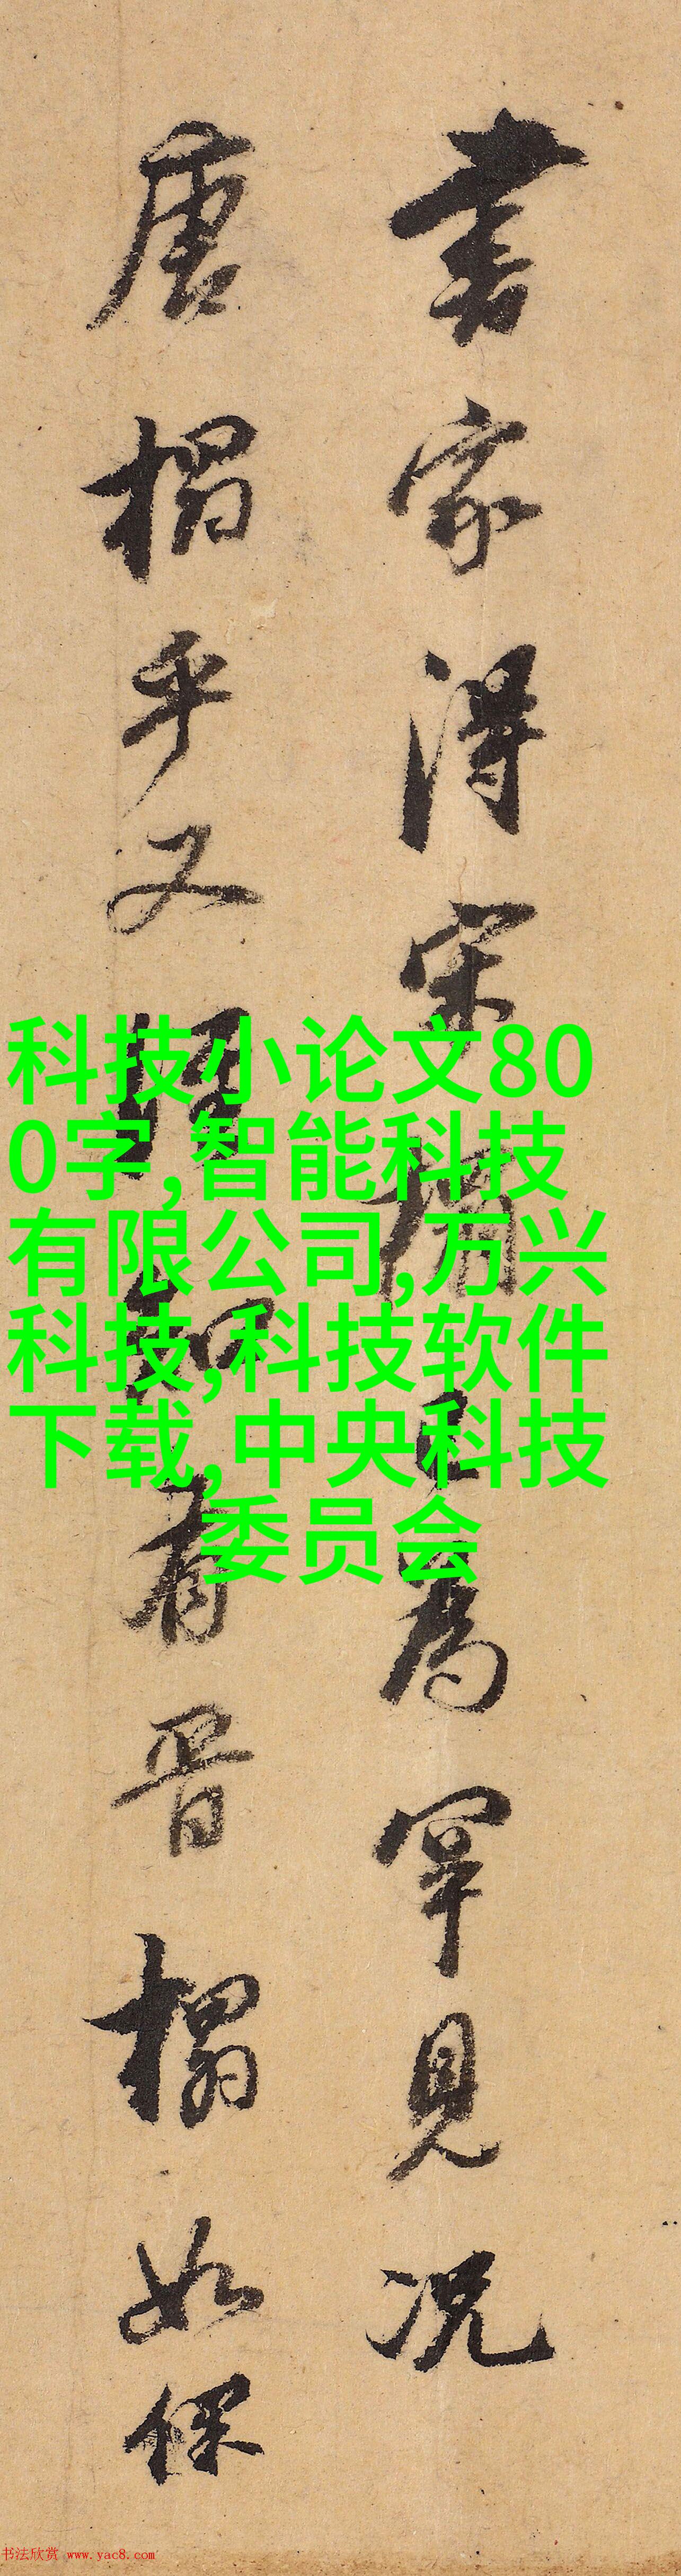 書家得宋搨已為罕見況
唐搨乎又知有晉搨如保
科技小论文80
0字,智能科技
有限公司,万兴
科技,科技软件
下载,中央科技
委员会
书法欣赏 www.yac8.com